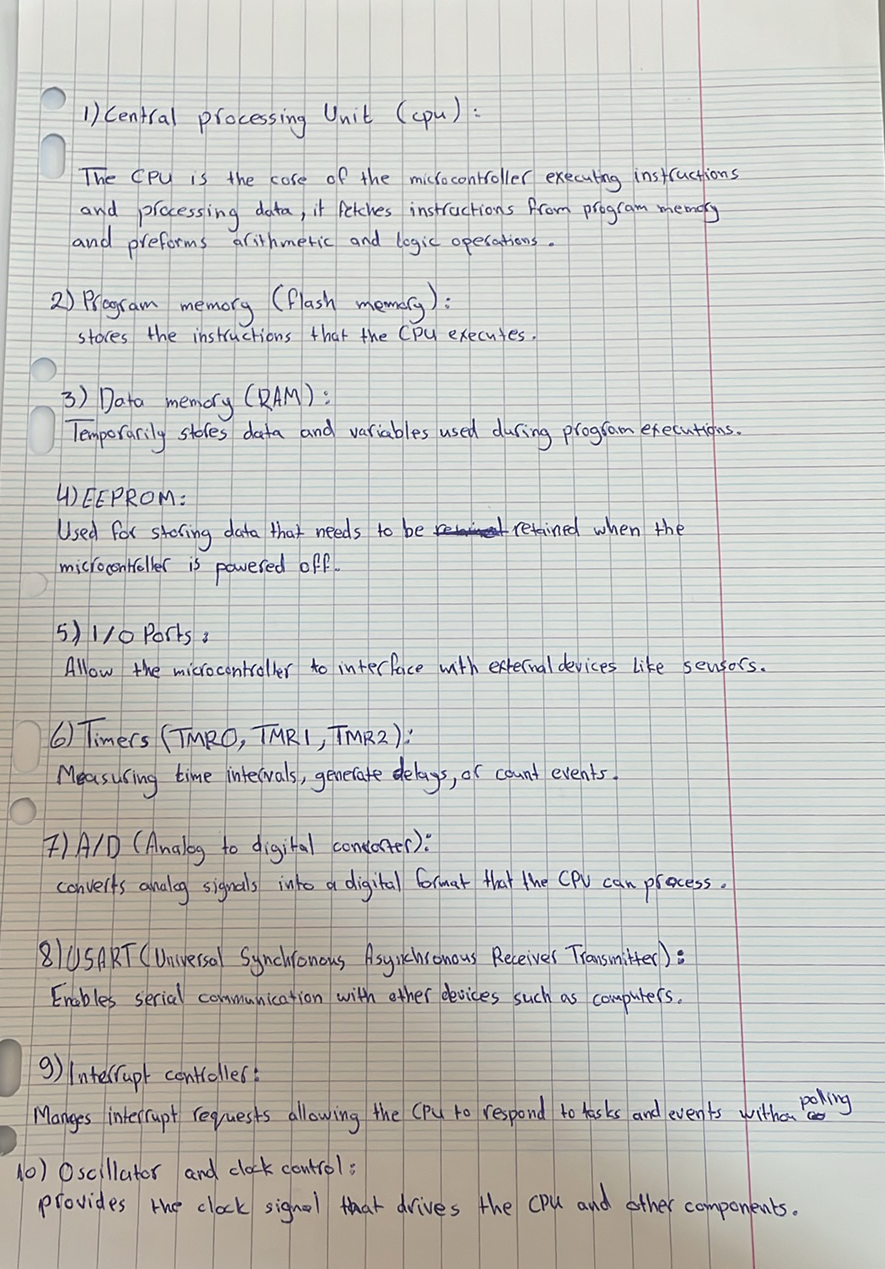 1) Central processing Unit (cpu) :
The CPU is the core of the microcontroller executing instructions
and processing data, it fetches instructions from program memory
and preforms arithmetic and logic operations.
2) Program memory (flash memory) :
stores the instructions that the CPU executes.
3) Data memory (RAM) :
Temporarily stores data and variables used during program executions.
4) EEPROM :
Used for storing data that needs to be retained when the
microcontroller is powered off.
5) I/O Ports :
Allow the microcontroller to interface with external devices like sensors.
6) Timers (TMR0, TMR1, TMR2) :
Measuring time intervals, generate delays, or count events.
7) A/D (Analog to digital convorter) :
converts analog signals into a digital format that the CPU can process.
8) USART (Universal Synchronous Asynchronous Receiver Transmitter) :
Enables serial communication with other devices such as computers.
9) Interrupt controller :
Manges interrupt requests allowing the CPU to respond to tasks and events polling
10) Oscillator and clock control :
provides the clock signal that drives the CPU and other components.